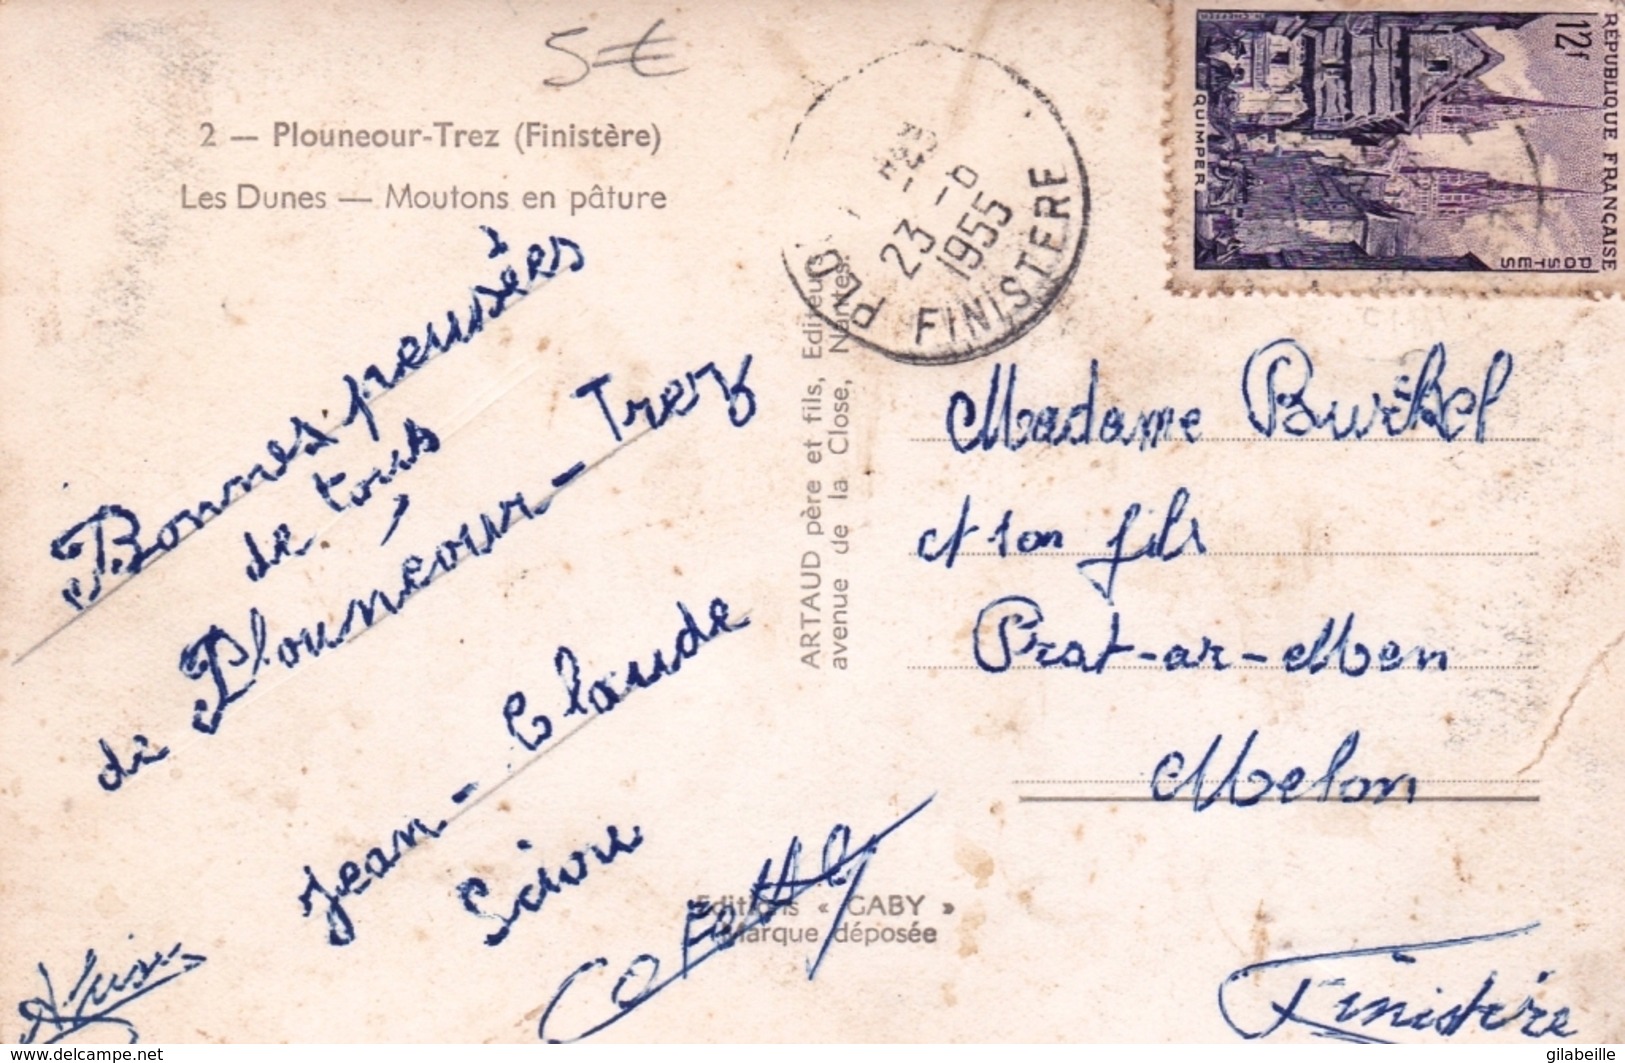 5€
2 — Plouneour-Trez (Finistère)
Les Dunes — Moutons en pâture
Bonnes pensées
de tous
de Plounéour-Trez
Jean-Claude
Colette
ARTAUD père et fils, Editeurs
avenue de la Close, Nantes.
Editions « GABY »
Marque déposée
PLO
23 -
1955
FINISTERE
12f
RÉPUBLIQUE FRANÇAISE
POSTES
QUIMPER
Madame
et son fils
Prat-ar-Men
Melon
Finistère
www.delcampe.net
gilabeille